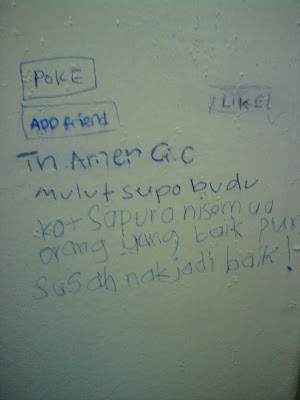 POKE
LIKE
ADD friend
Tn. Amer G.C
mulut supo budu
kat Sapura ni semua
orang yang baik pun
susah nak jadi baik!